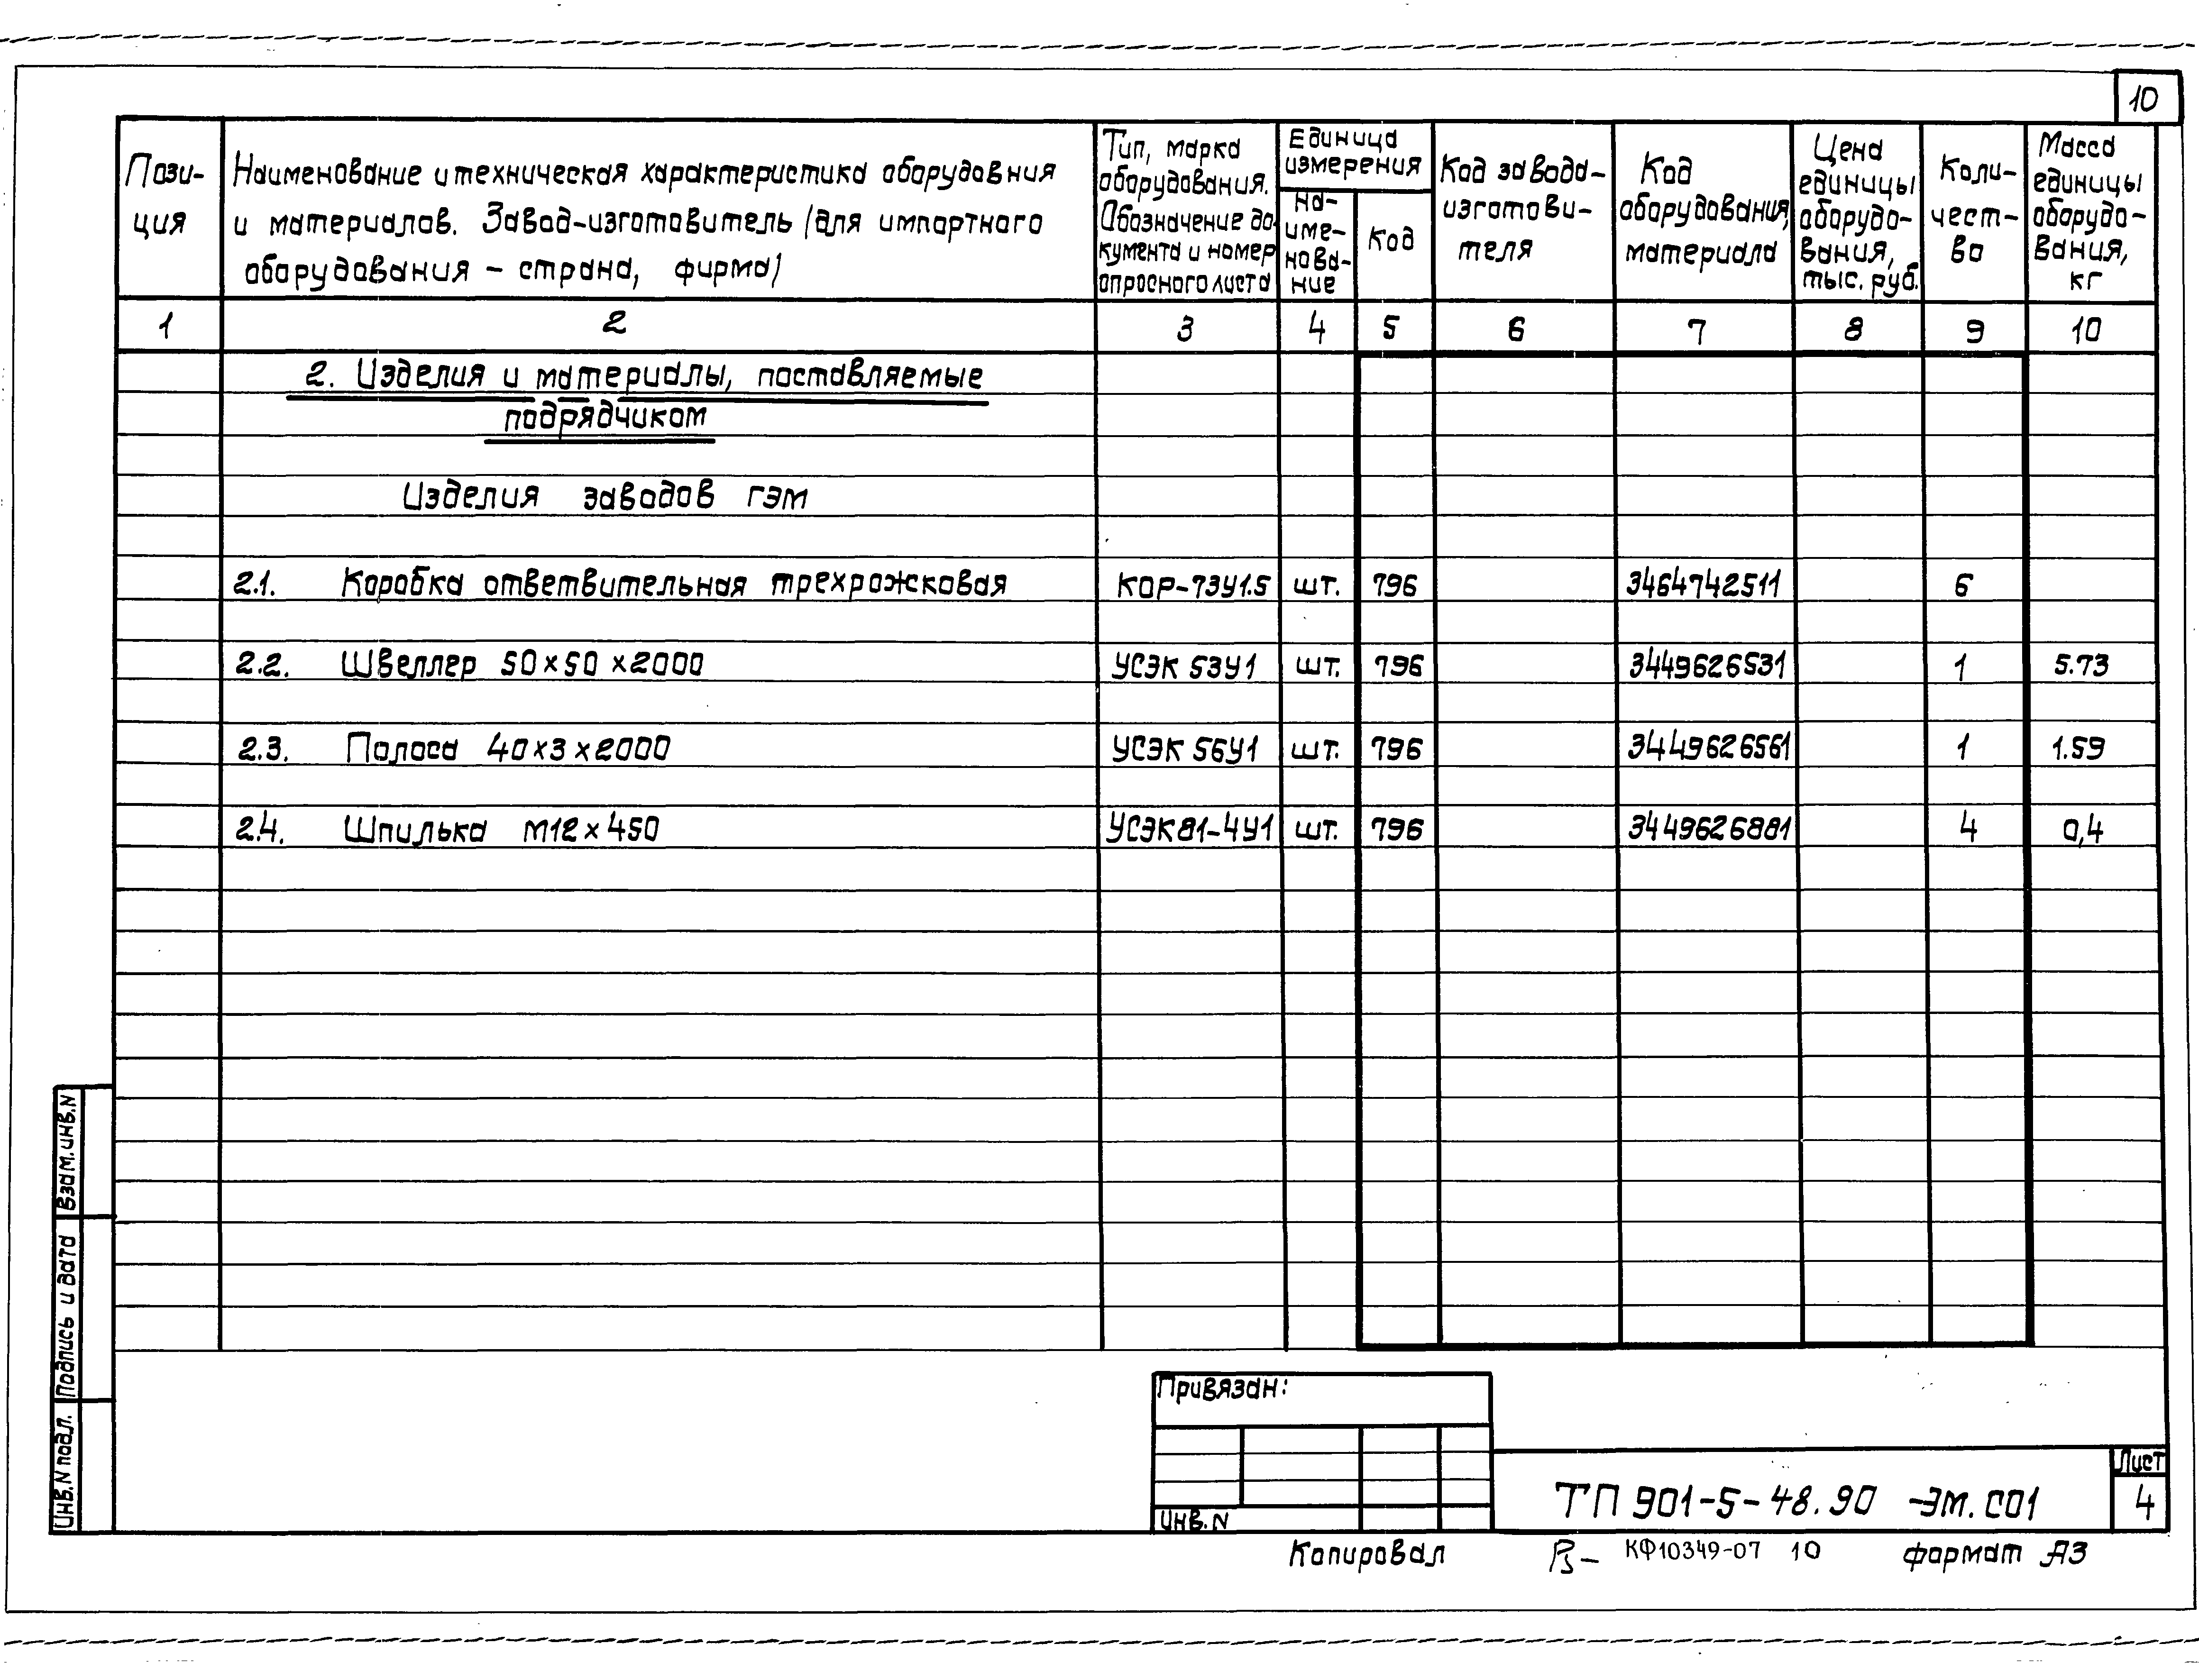 10
Пози-
ция
Наименование и техническая характеристика оборудавния
и материалов. Завод-изготовитель (для импортного
оборудования – страна, фирма)
Тип, марка
оборудования.
Обозначение до
кумента и номер
опросного листа
Единица
измерения
На-
име-
нова-
ние
Код
Код завода-
изготови-
теля
Код
оборудования,
материала
Цена
единицы
оборудо-
вания,
тыс. руб.
Коли-
чест-
во
Масса
единицы
оборудо-
вания,
кг
1 2 3 4 5 6 7 8 9 10
2. Изделия и материалы, поставляемые
подрядчиком
Изделия заводов ГЭМ
2.1. Коробка ответвительная трехрожковая КОР-73У1.5 шт. 796 3464742511 6
2.2. Швеллер 50×50×2000 УСЭК 53У1 шт. 796 3449626531 1 5.73
2.3. Полоса 40×3×2000 УСЭК 56У1 шт. 796 3449626561 1 1.59
2.4. Шпилька М12×450 УСЭК81-4У1 шт. 796 3449626881 4 0,4
Взам.инв.N
Подпись и дата
Инв.N подл.
Привязан:
Инв.N
ТП 901-5-48.90 -ЭМ.СО1
Лист
4
Копировал КФ10349-07 10 формат А3